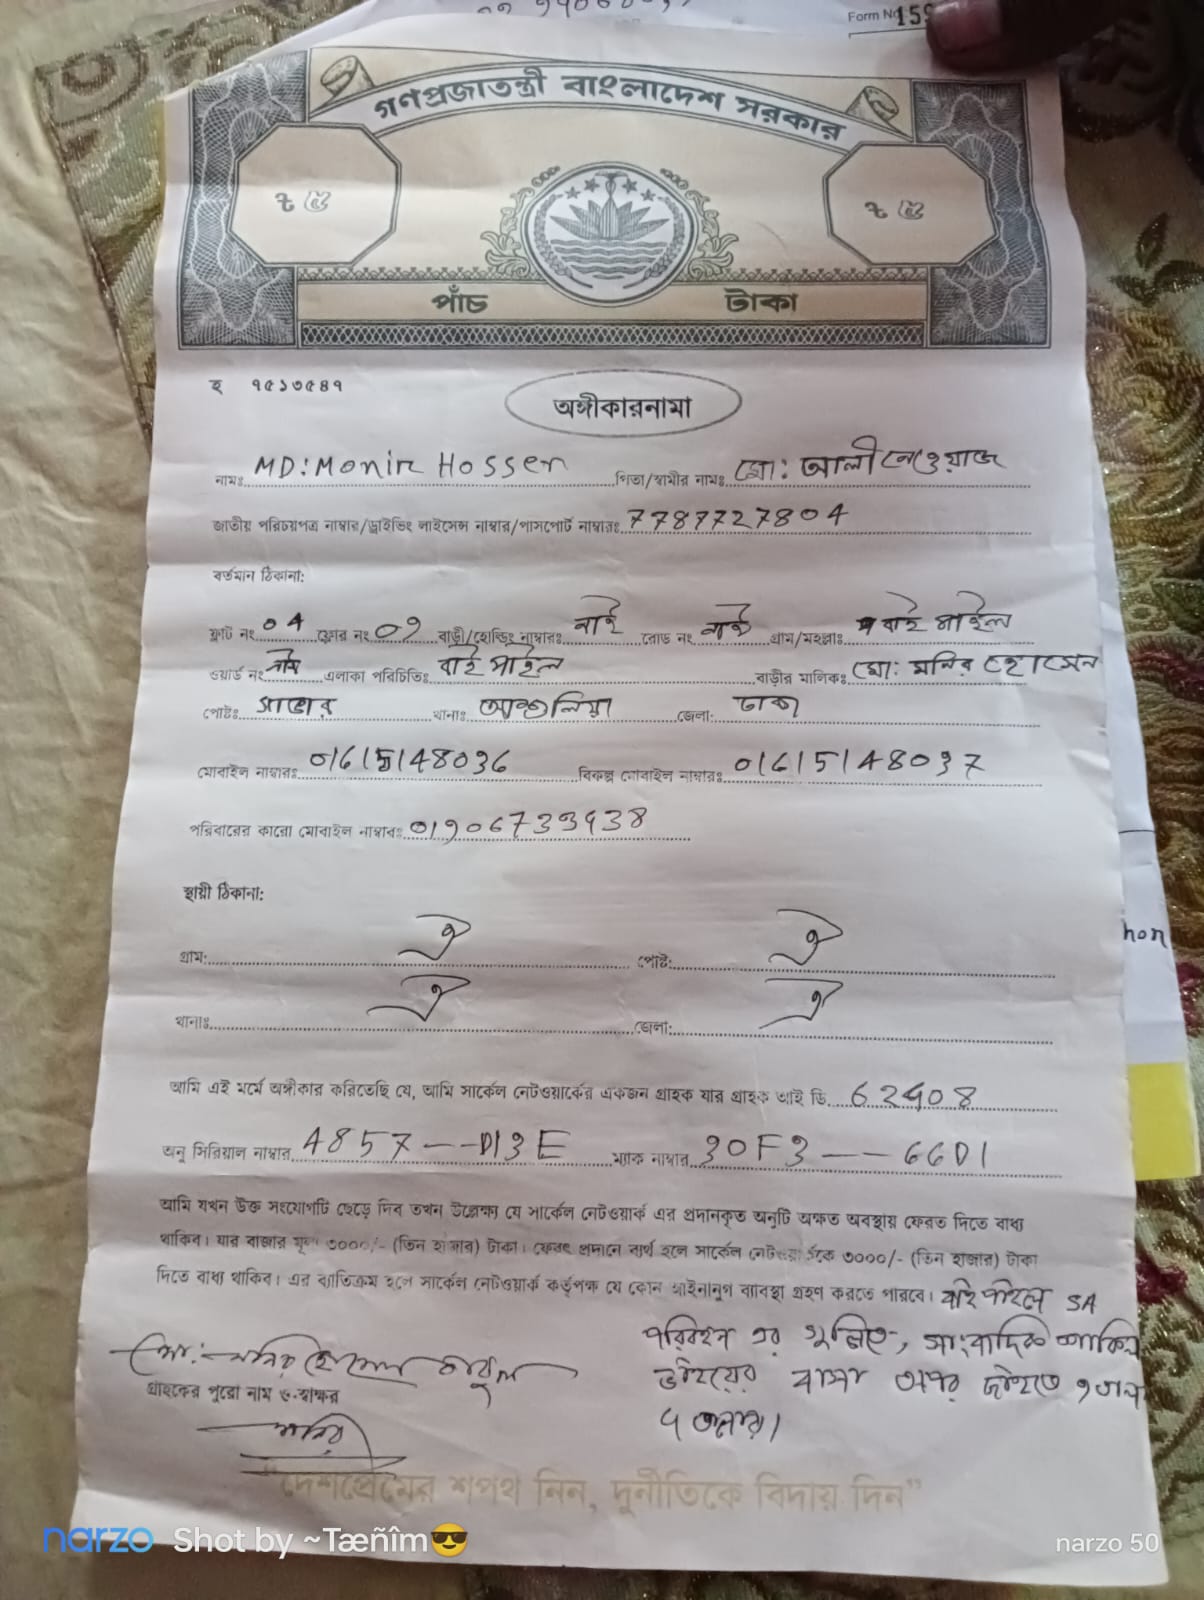 Form No 159
গণপ্রজাতন্ত্রী বাংলাদেশ সরকার
ট ৫ ট ৫
পাঁচ টাকা
হ ৭৫১৩৫৪৭
অঙ্গীকারনামা
নামঃ MD: Monir Hossen পিতা/স্বামীর নামঃ মো: আলী নেওয়াজ
জাতীয় পরিচয়পত্র নাম্বার/ড্রাইভিং লাইসেন্স নাম্বার/পাসপোর্ট নাম্বারঃ 7787727804
বর্তমান ঠিকানা:
ফ্লাট নং 04 ফ্লোর নং 09 বাড়ী/হোল্ডিং নাম্বারঃ নাই রোড নং নাই গ্রাম/মহল্লাঃ বাই পাইল
ওয়ার্ড নং নাই এলাকা পরিচিতিঃ বাই পাইল বাড়ীর মালিকঃ মো: মনির হোসেন
পোষ্টঃ সাভার থানাঃ আশুলিয়া জেলা: ঢাকা
মোবাইল নাম্বারঃ 01615148036 বিকল্প মোবাইল নাম্বারঃ 01615148037
পরিবারের কারো মোবাইল নাম্বারঃ 01906733938
স্থায়ী ঠিকানা:
গ্রাম: ঐ পোষ্ট: ঐ
থানাঃ ঐ জেলা: ঐ
আমি এই মর্মে অঙ্গীকার করিতেছি যে, আমি সার্কেল নেটওয়ার্কের একজন গ্রাহক যার গ্রাহক আই ডি 62408
অনু সিরিয়াল নাম্বার 4857---D13E ম্যাক নাম্বার 30F3---66D1
আমি যখন উক্ত সংযোগটি ছেড়ে দিব তখন উল্লেক্ষ্য যে সার্কেল নেটওয়ার্ক এর প্রদানকৃত অনুটি অক্ষত অবস্থায় ফেরত দিতে বাধ্য
থাকিব। যার বাজার মূল্য ৩০০০/- (তিন হাজার) টাকা। ফেরৎ প্রদানে ব্যর্থ হলে সার্কেল নেটওয়ার্ককে ৩০০০/- (তিন হাজার) টাকা
দিতে বাধ্য থাকিব। এর ব্যাতিক্রম হলে সার্কেল নেটওয়ার্ক কর্তৃপক্ষ যে কোন আইনানুগ ব্যাবস্থা গ্রহণ করতে পারবে। বাই পাইল SA
পরিবহন এর গলিতে, সাংবাদিক শাকিল
ভাইয়ের বাসা
মো: মনির হোসেন
গ্রাহকের পুরো নাম ও স্বাক্ষর
মনির
"দেশপ্রেমের শপথ নিন, দুর্নীতিকে বিদায় দিন"
hon
narzo Shot by ~Tæñîm😎 narzo 50